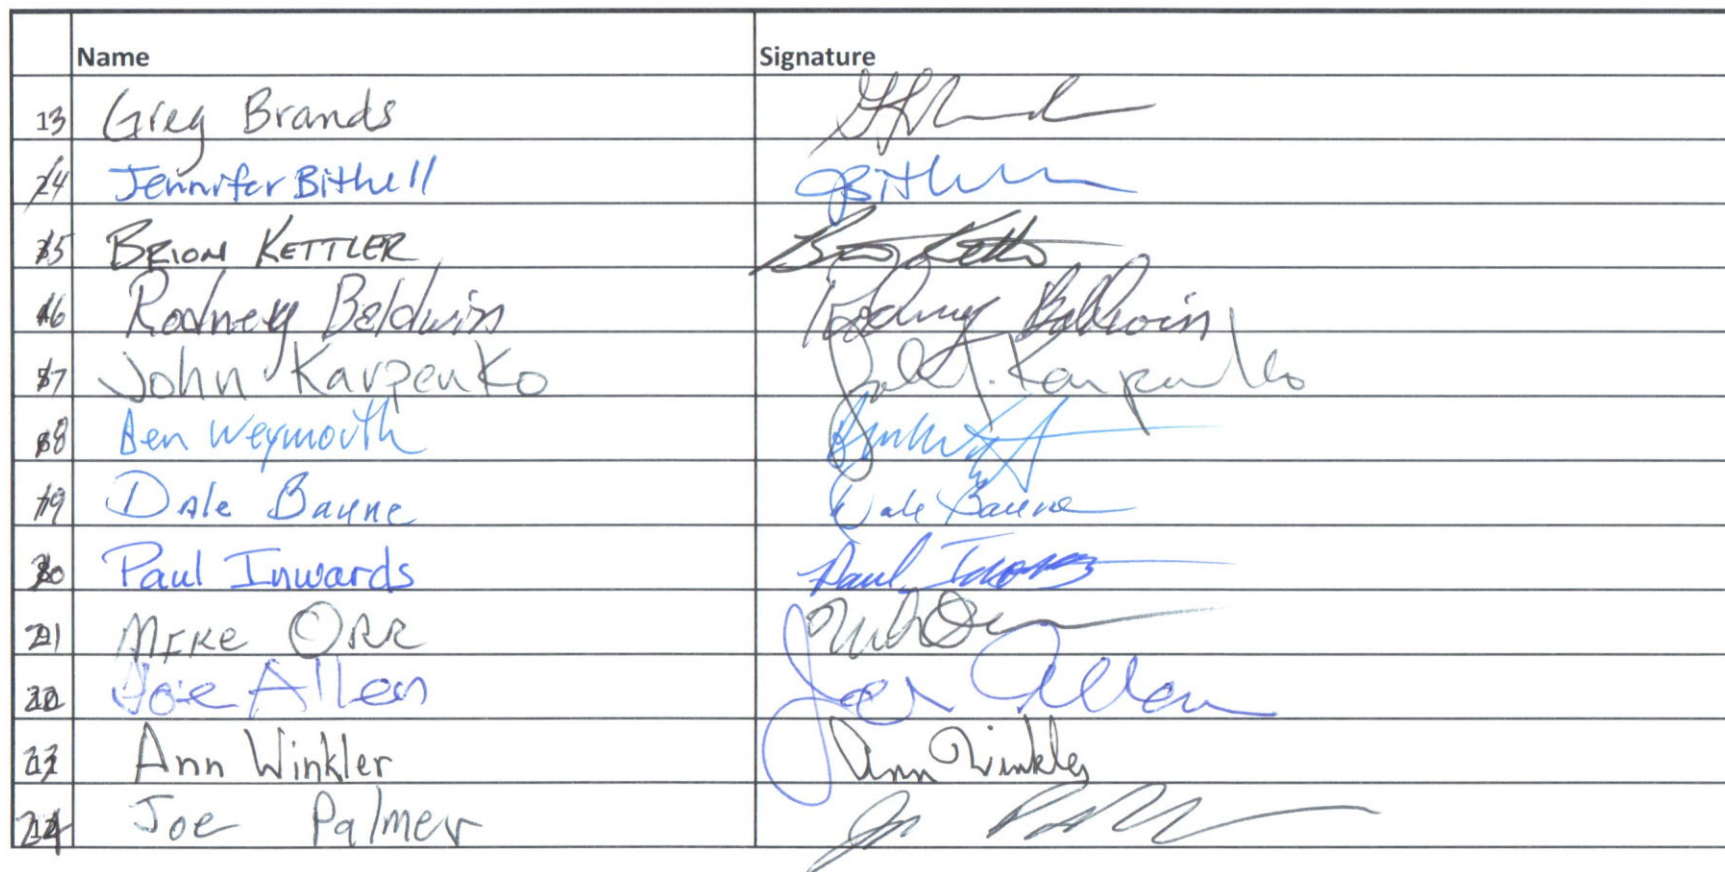 Name Signature
13 Greg Brands
14 Jennifer Bithell JBithell
15 BRION KETTLER Brion Kettler
16 Rodney Baldwin Rodney Baldwin
17 John Karpenko John J. Karpenko
18 Ben Weymouth
19 Dale Bayne Dale Bayne
20 Paul Inwards Paul Inwards
21 MIKE ORR Mike Orr
22 Joe Allen Joe Allen
23 Ann Winkler Ann Winkler
24 Joe Palmer